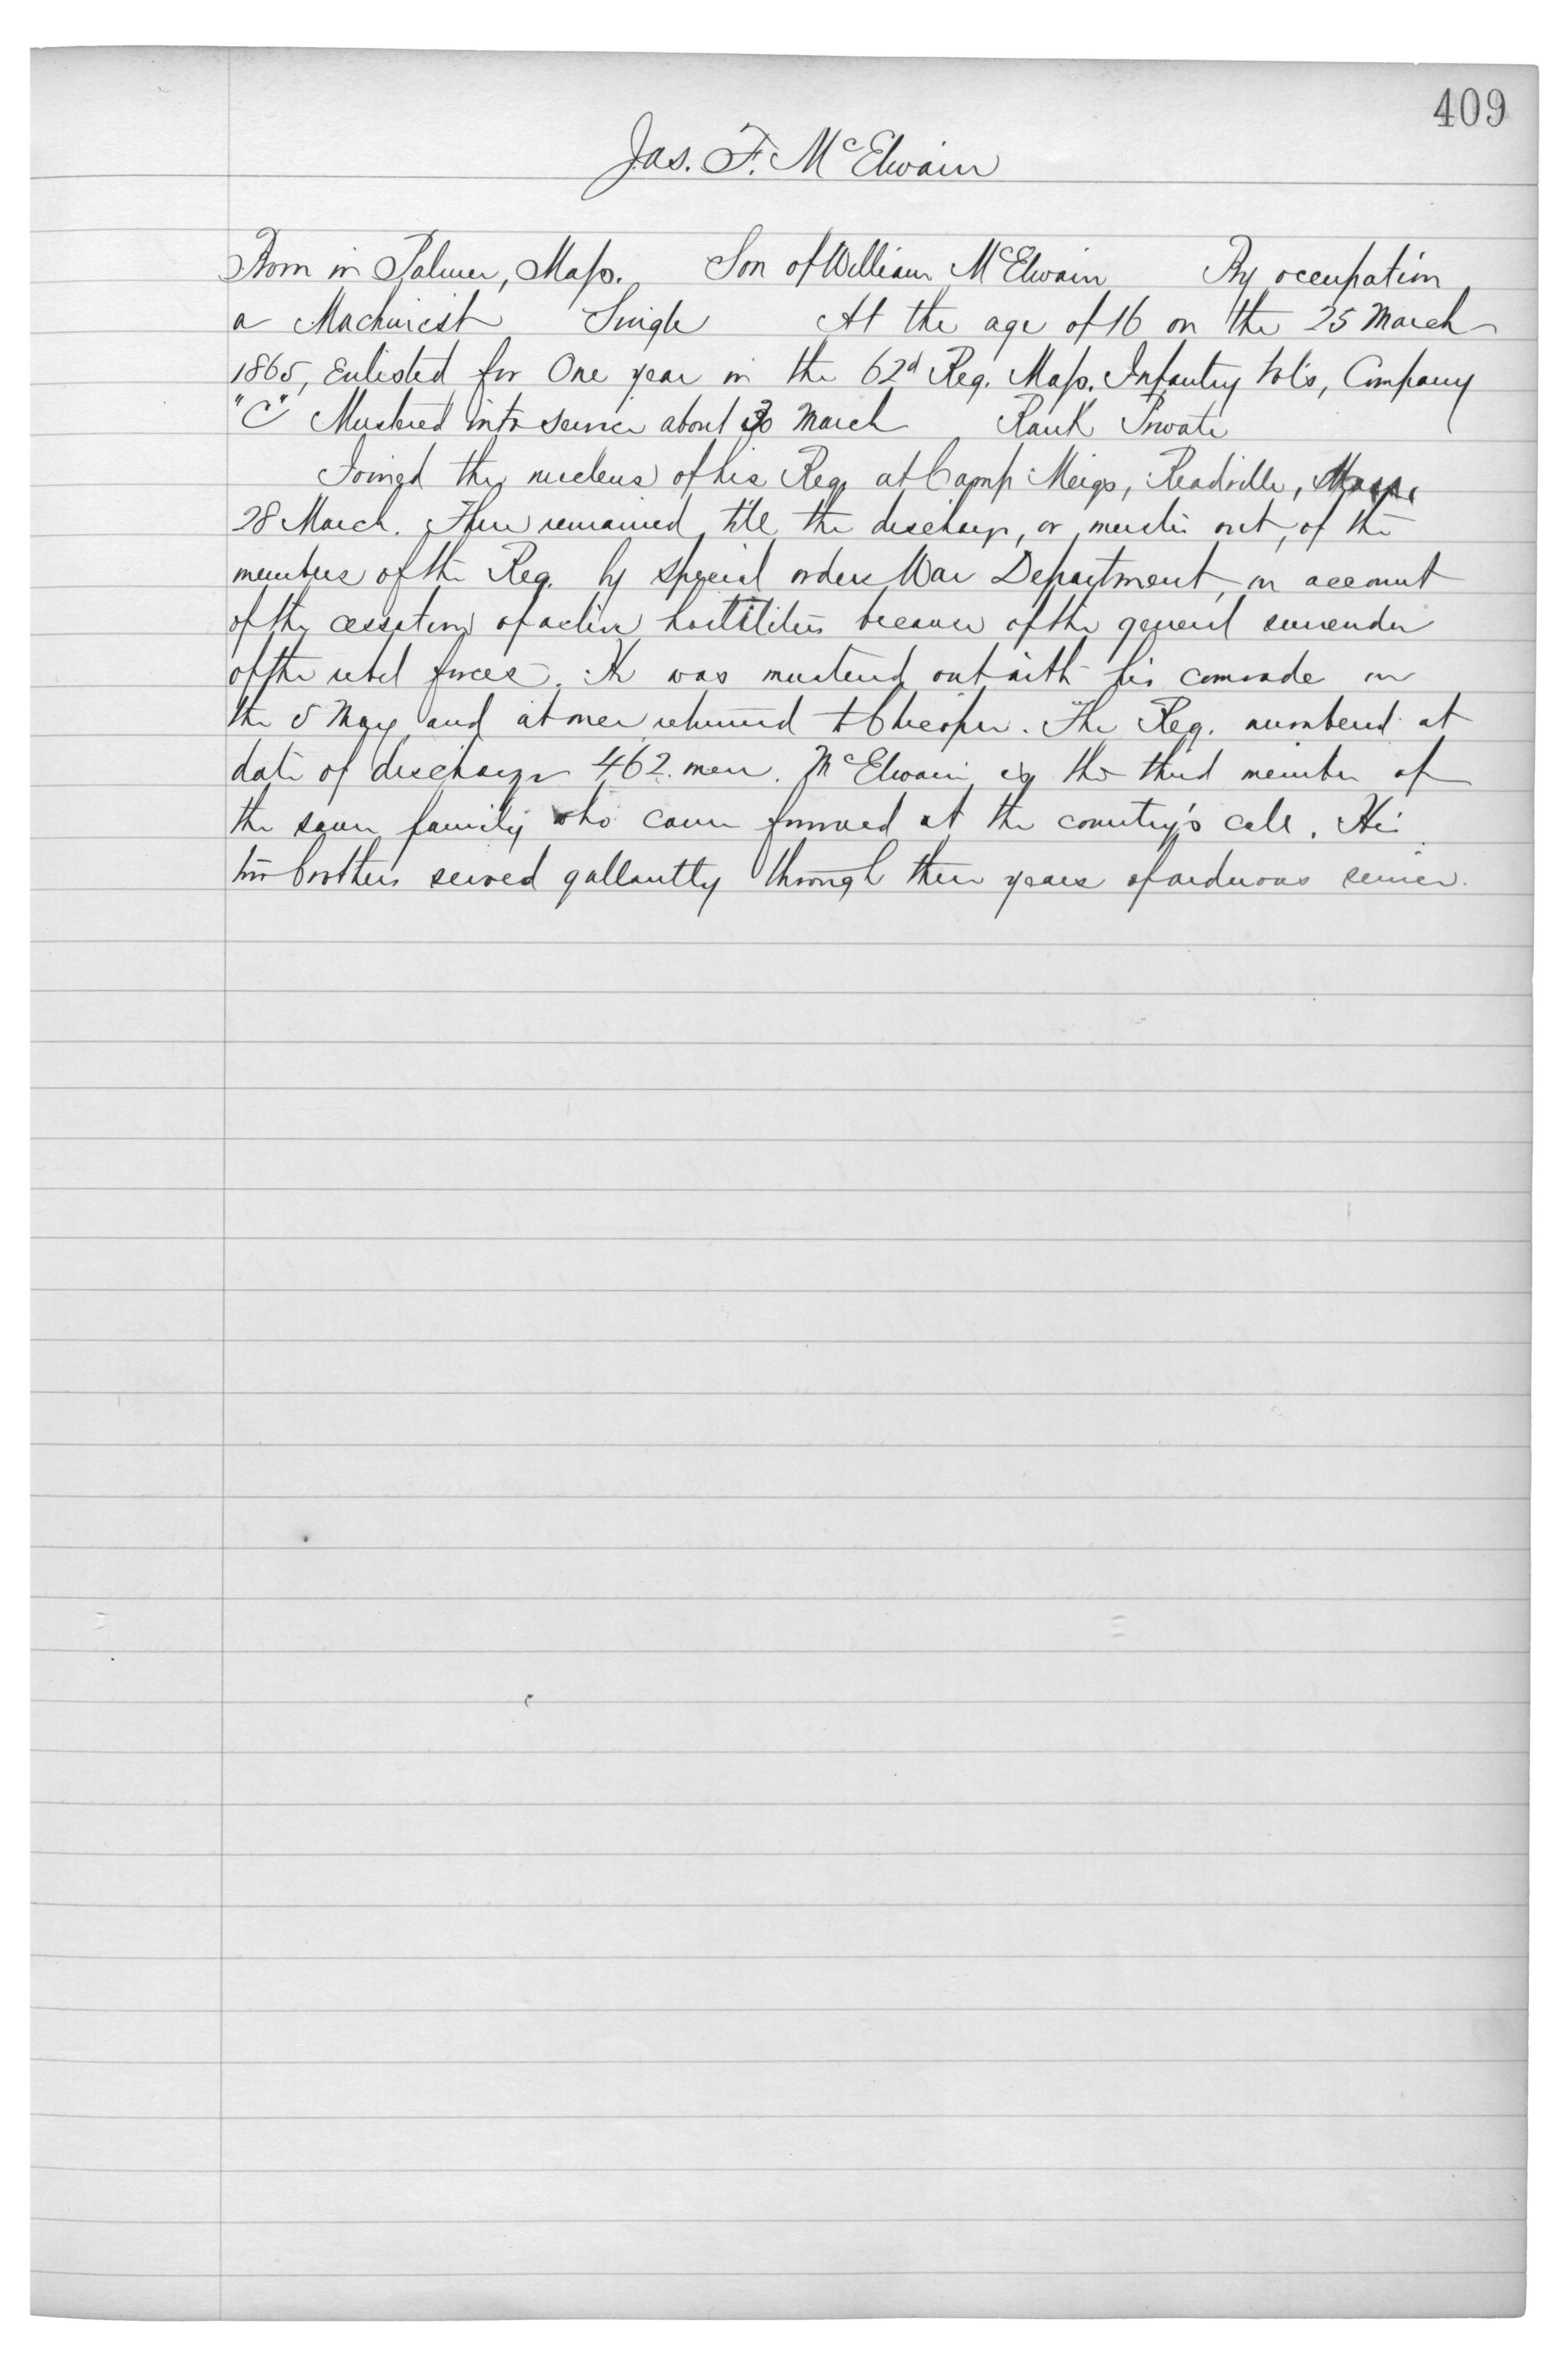 409
Jas. F. McElwain
Born in Palmer, Mass. Son of William McElwain By occupation
a Machinist Single At the age of 16 on the 25 March
1865, Enlisted for One year in the 62d Reg. Mass. Infantry Vols, Company
"C" Mustered into service about 30 March Rank Private
Joined the nucleus of his Reg. at Camp Meigs, Readville, Mass.
28 March. There remained till the discharge, or muster out, of the
members of the Reg. by special orders War Department, on account
of the cessation of active hostilities because of the general surrender
of the rebel forces. He was mustered out with his comrade on
the 5 May, and at once returned to Chicopee. The Reg. numbered at
date of discharge 462 men. McElwain is the third member of
the same family who came forward at the country's call. His
two brothers served gallantly through three years of arduous service.